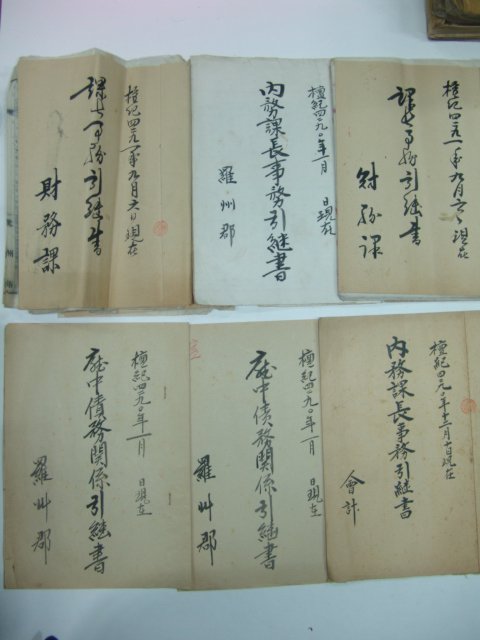 檀紀四二九一年九月六日現在
課長事務引継書
財務課
檀紀四二九〇年一月 日現在
內務課長事務引継書
羅州郡
檀紀四二九一年九月六日現在
課長事務引継書
財務課
檀紀四二九〇年一月 日現在
廳中債務關係引継書
羅州郡
檀紀四二九〇年一月 日現在
廳中債務關係引継書
羅州郡
檀紀四二九〇年十二月七日現在
內務課長事務引継書
會計